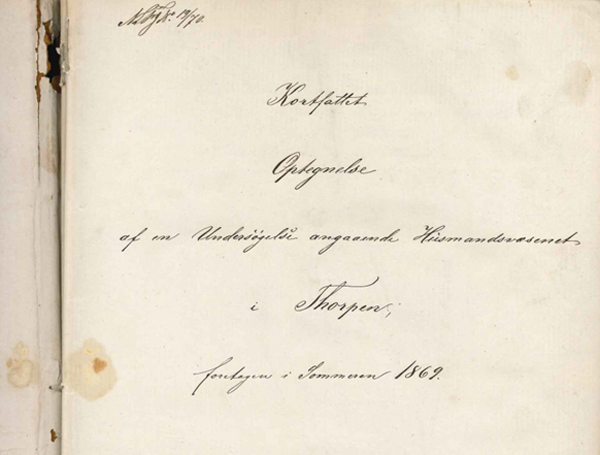 Kortfattet
Optegnelse
af en Undersøgelse angaaende Húsmandsvæsenet
i Thorpen,
foretagen i Sommeren 1869.